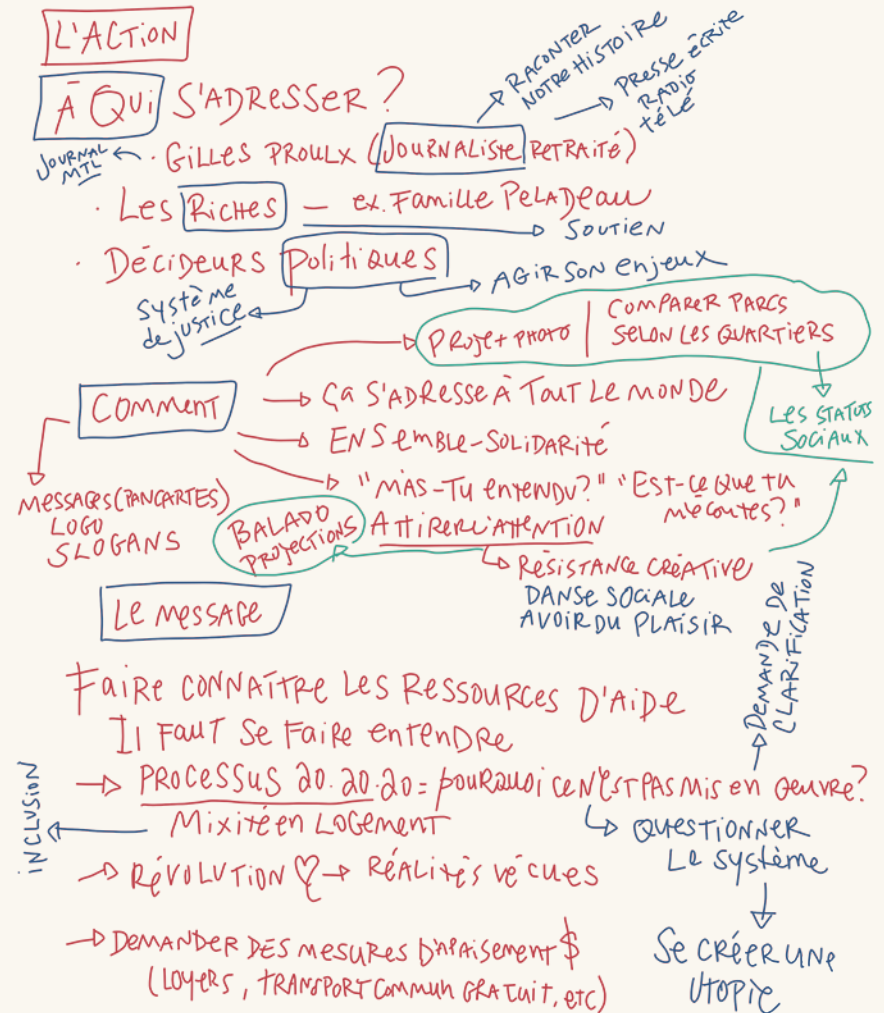 L'ACTION
À QUI S'ADRESSER ?
RACONTER
NOTRE HISTOIRE
PRESSE ÉCRITE
RADIO
TÉLÉ
JOURNAL
MTL
· GILLES PROULX (JOURNALISTE RETRAITÉ)
· LES RICHES — ex. FAMILLE PELADEAU
SOUTIEN
· DÉCIDEURS POLITIQUES
AGIR SON ENJEUX
SYSTÈME
de JUSTICE
PROJET PHOTO | COMPARER PARCS
SELON LES QUARTIERS
LES STATUTS
SOCIAUX
COMMENT
ÇA S'ADRESSE À TOUT LE MONDE
ENSEMBLE-SOLIDARITÉ
"M'AS-TU ENTENDU?" "EST-CE QUE TU
M'ÉCOUTES?"
MESSAGES (PANCARTES)
LOGO
SLOGANS
BALADO
PROJECTIONS
ATTIRER L'ATTENTION
RÉSISTANCE CRÉATIVE
DANSE SOCIALE
AVOIR DU PLAISIR
LE MESSAGE
FAIRE CONNAÎTRE LES RESSOURCES D'AIDE
IL FAUT SE FAIRE ENTENDRE
PROCESSUS 20.20.20 = POURQUOI CE N'EST PAS MIS EN OEUVRE?
DEMANDE DE
CLARIFICATION
MIXITÉ EN LOGEMENT
INCLUSION
QUESTIONNER
LE SYSTÈME
RÉVOLUTION ♡ → RÉALITÉS VÉCUES
DEMANDER DES MESURES D'APAISEMENT $
(LOYERS, TRANSPORT COMMUN GRATUIT, ETC)
SE CRÉER UNE
UTOPIE